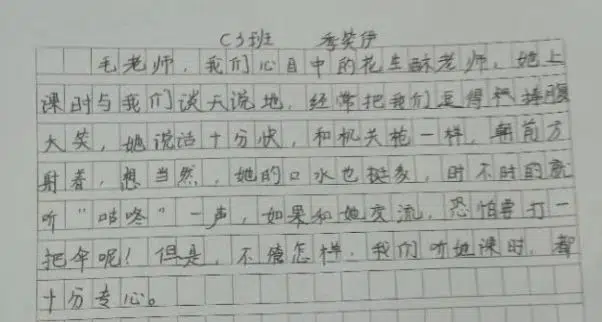 C3班 季笑伊
毛老师,我们心目中的花生酥老师。她上
课时与我们谈天说地,经常把我们逗得捧腹
大笑,她说话十分快,和机关枪一样,朝前方
射着,想当然,她的口水也挺多,时不时的就
听“咕咚”一声,如果和她交流,恐怕要打一
把伞呢!但是,不管怎样,我们听她课时,都
十分专心。